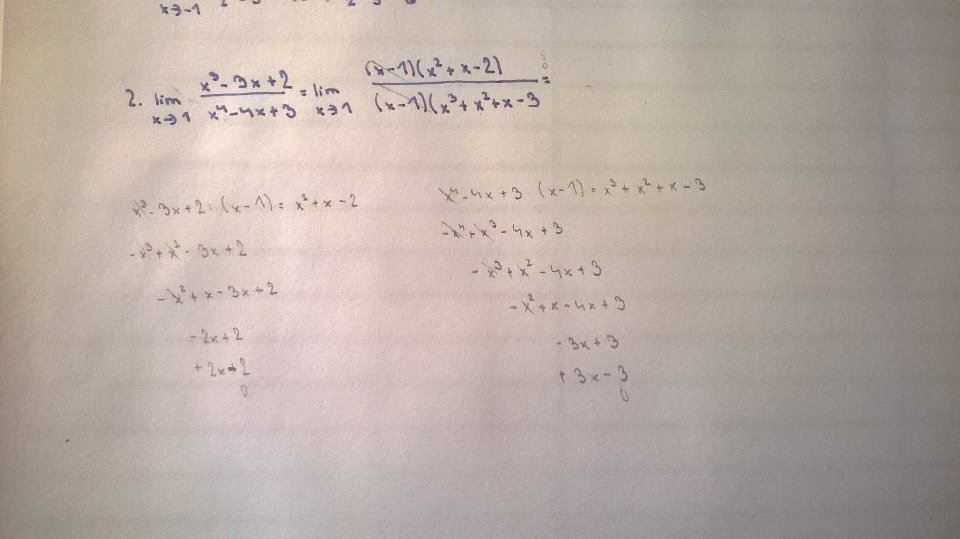 x→-1
2. lim x→1 x³-3x+2 / x⁴-4x+3 = lim x→1 (x-1)(x²+x-2) / (x-1)(x³+x²+x-3 =
x³-3x+2:(x-1)=x²+x-2
-x³+x²-3x+2
-x²+x-3x+2
-2x+2
+2x-2
0
x⁴-4x+3:(x-1)=x³+x²+x-3
-x⁴+x³-4x+3
-x³+x²-4x+3
-x²+x-4x+3
-3x+3
+3x-3
0